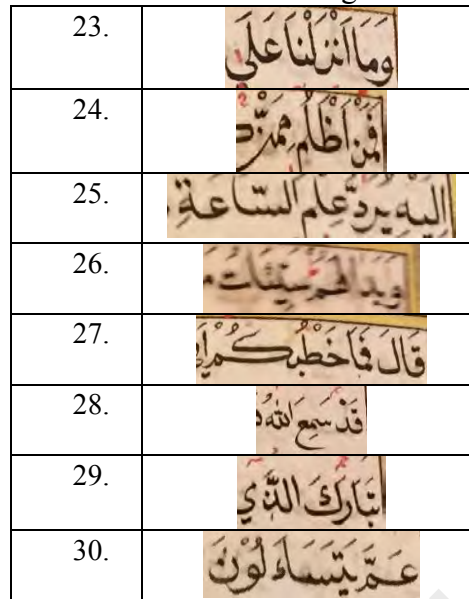 23. وَمَا اَنْزَلْنَا عَلَى
24. فَمَنْ اَظْلَمُ مِمَّنْ
25. اِلَيْهِ يُرَدُّ عِلْمُ السَّاعَةِ
26. وَبَدَا لَهُمْ سَيِّئَاتُ
27. قَالَ فَمَا خَطْبُكُمْ
28. قَدْ سَمِعَ اللّٰهُ
29. تَبَارَكَ الَّذِي
30. عَمَّ يَتَسَاءَلُونَ